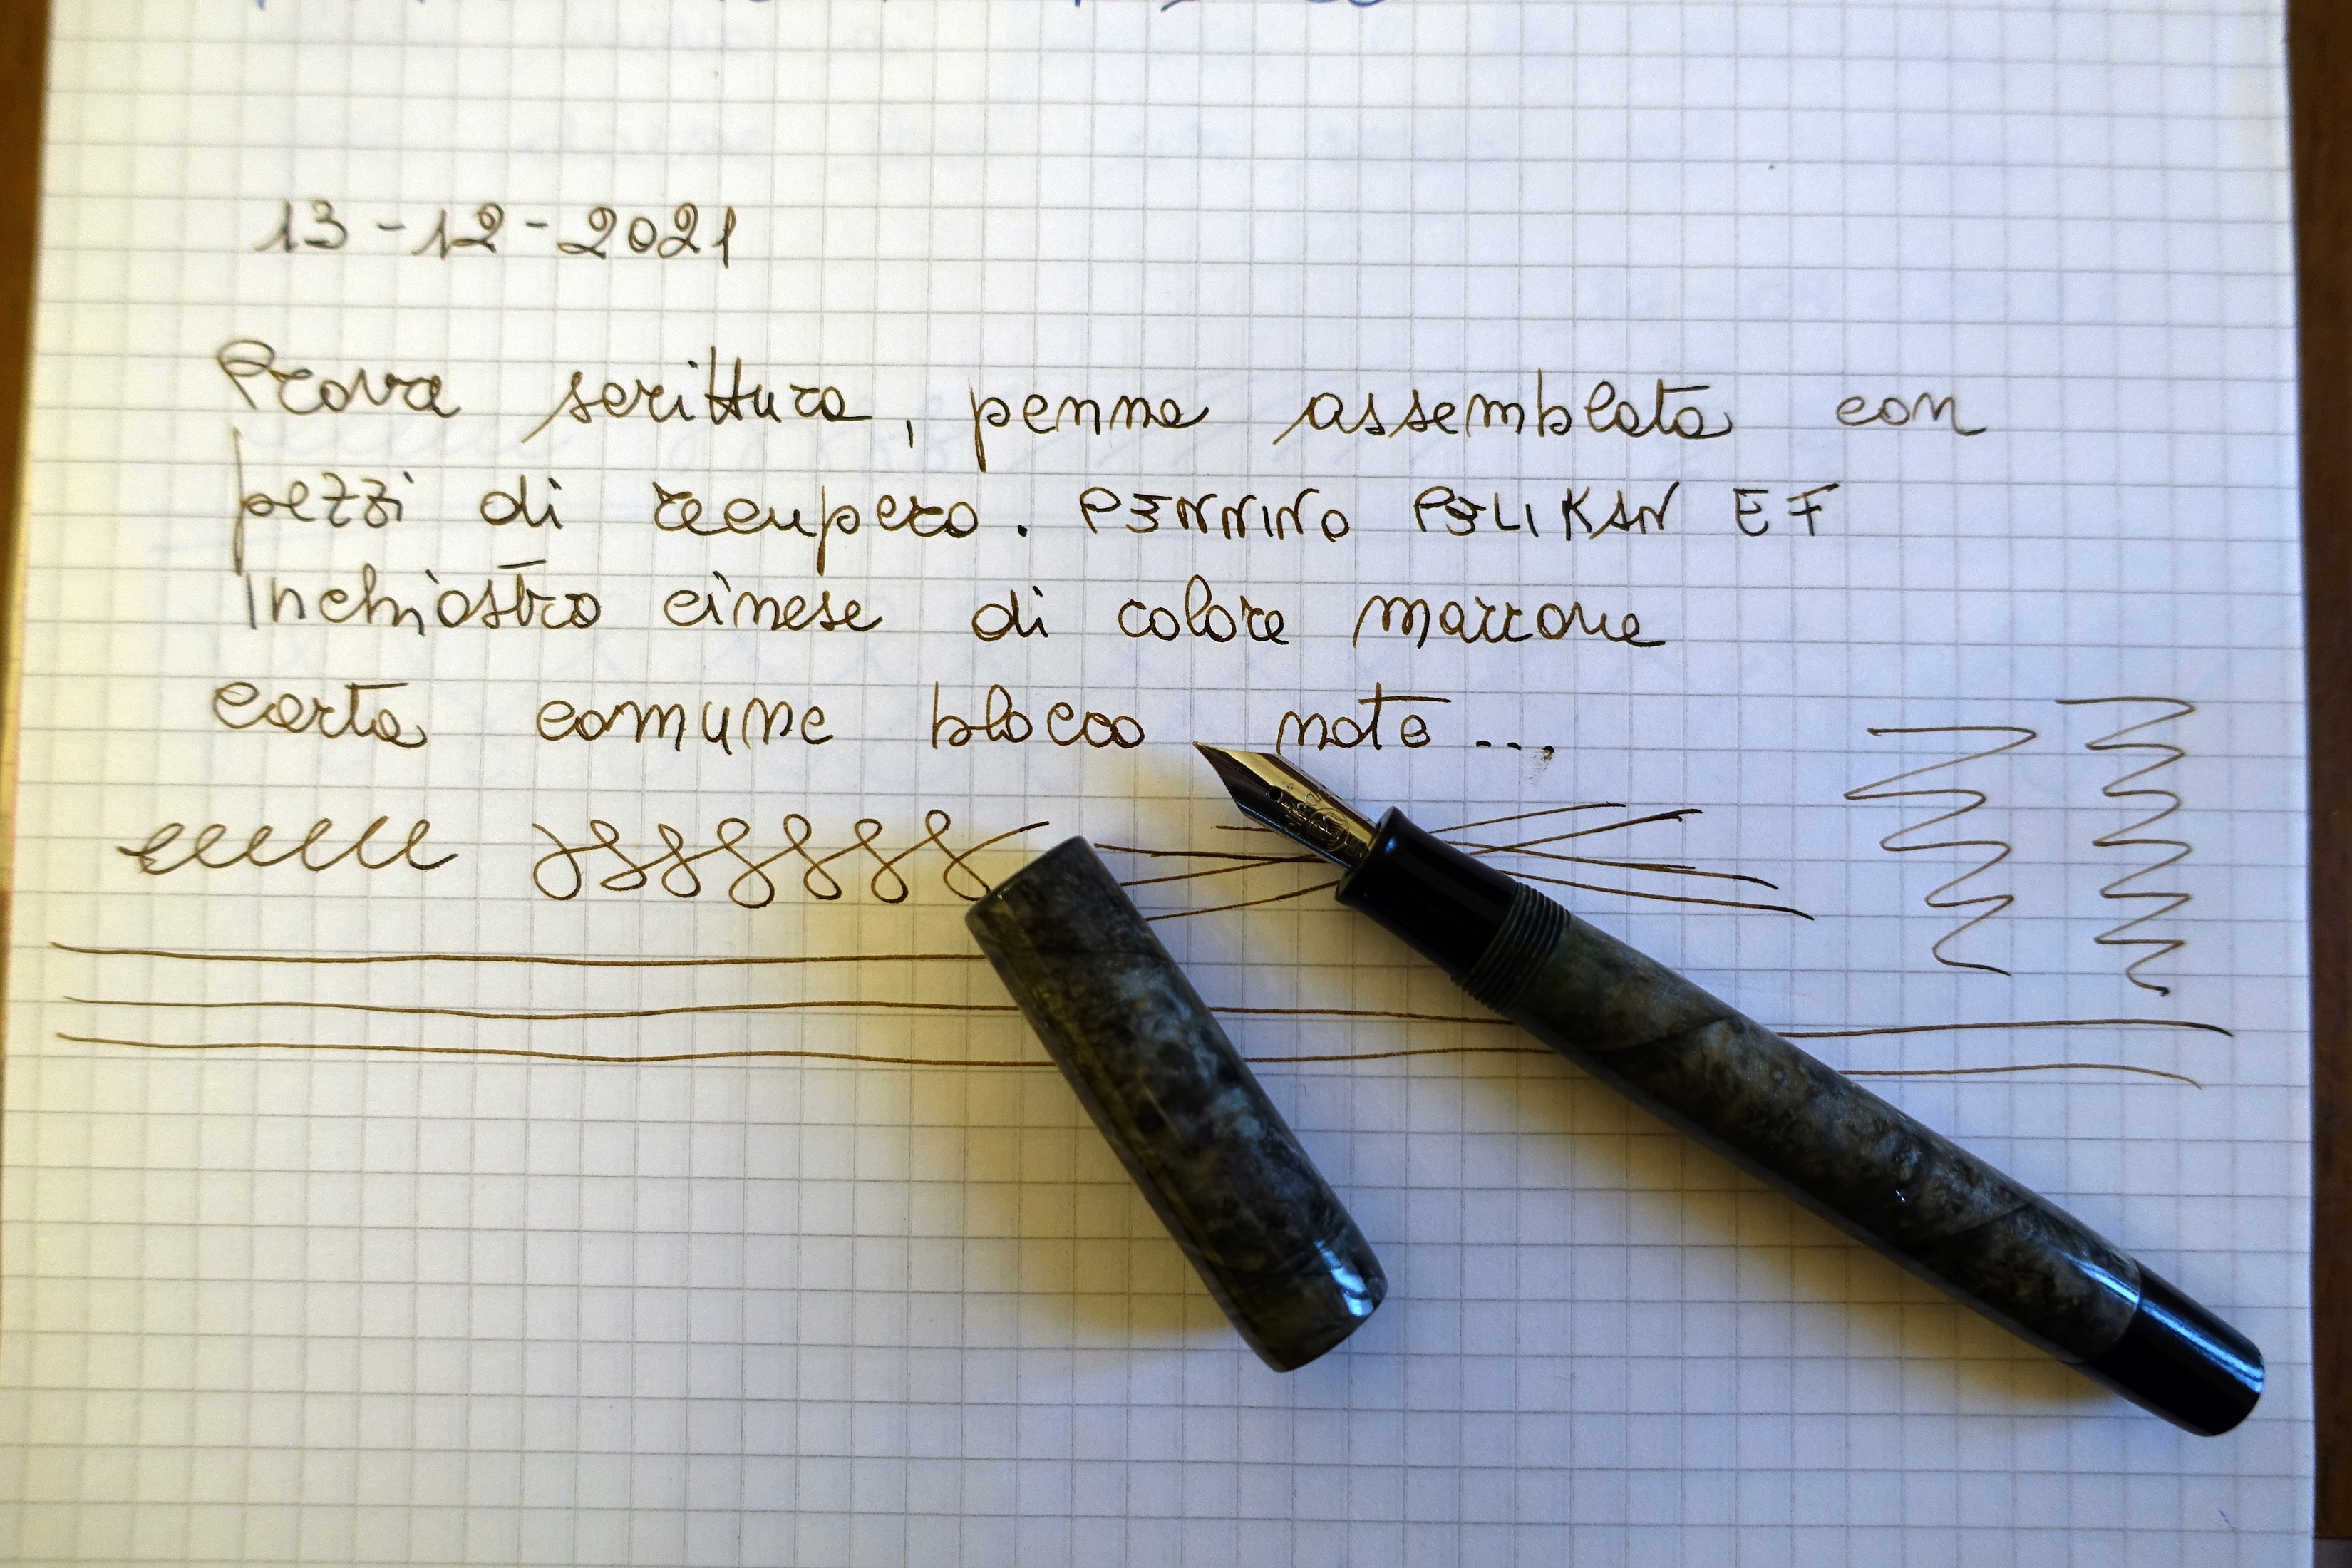 13-12-2021
Prova scrittura, penna assemblata con
pezzi di recupero. PENNINO PELIKAN EF
Inchiostro cinese di colore marrone
carta comune blocco note...